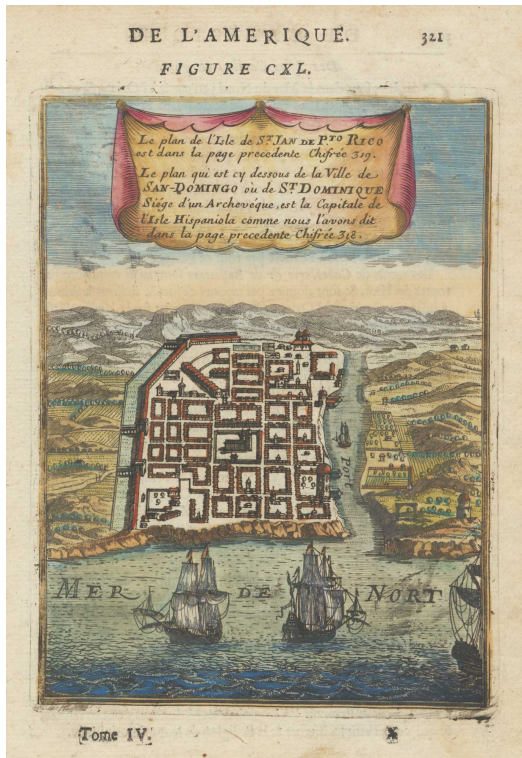 DE L'AMERIQUE. 321
FIGURE CXL.
Le plan de l'Isle de St. JAN DE P.TO RICO
est dans la page precedente Chifrée 319.
Le plan qui est cy dessous de la Ville de
SAN-DOMINGO où de St. DOMINIQUE
Siége d'un Archevéque, est la Capitale de
l'Isle Hispaniola comme nous l'avons dit
dans la page precedente Chifrée 318.
Port
MER DE NORT
Tome IV. X